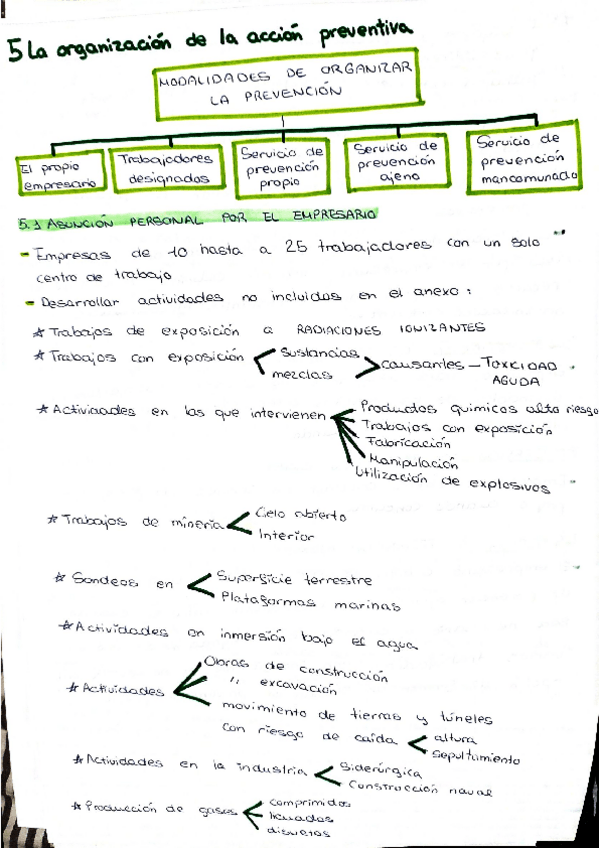 5 La organización de la acción preventiva
MODALIDADES DE ORGANIZAR
LA PREVENCIÓN
El propio
empresario
Trabajadores
designados
Servicio de
prevención
propio
Servicio de
prevención
ajeno
Servicio de
prevención
mancomunado
5.1 ASUNCIÓN PERSONAL POR EL EMPRESARIO
- Empresas de 10 hasta a 25 trabajadores con un solo
centro de trabajo
- Desarrollar actividades no incluidas en el anexo:
* Trabajos de exposición a RADIACIONES IONIZANTES
* Trabajos con exposición
Sustancias
mezclas
causantes - TOXICIDAD
AGUDA
* Actividades en las que intervienen
Productos químicos alto riesgo
Trabajos con exposición
Fabricación
Manipulación
Utilización de explosivos
* Trabajos de minería
Cielo abierto
Interior
* Sondeos en
Superficie terrestre
Plataformas marinas
* Actividades en inmersión bajo el agua
* Actividades
Obras de construcción
" excavación
movimiento de tierras y túneles
con riesgo de caída
altura
sepultamiento
* Actividades en la industria
Siderúrgica
Construcción naval
* Producción de gases
comprimidos
licuados
disueltos